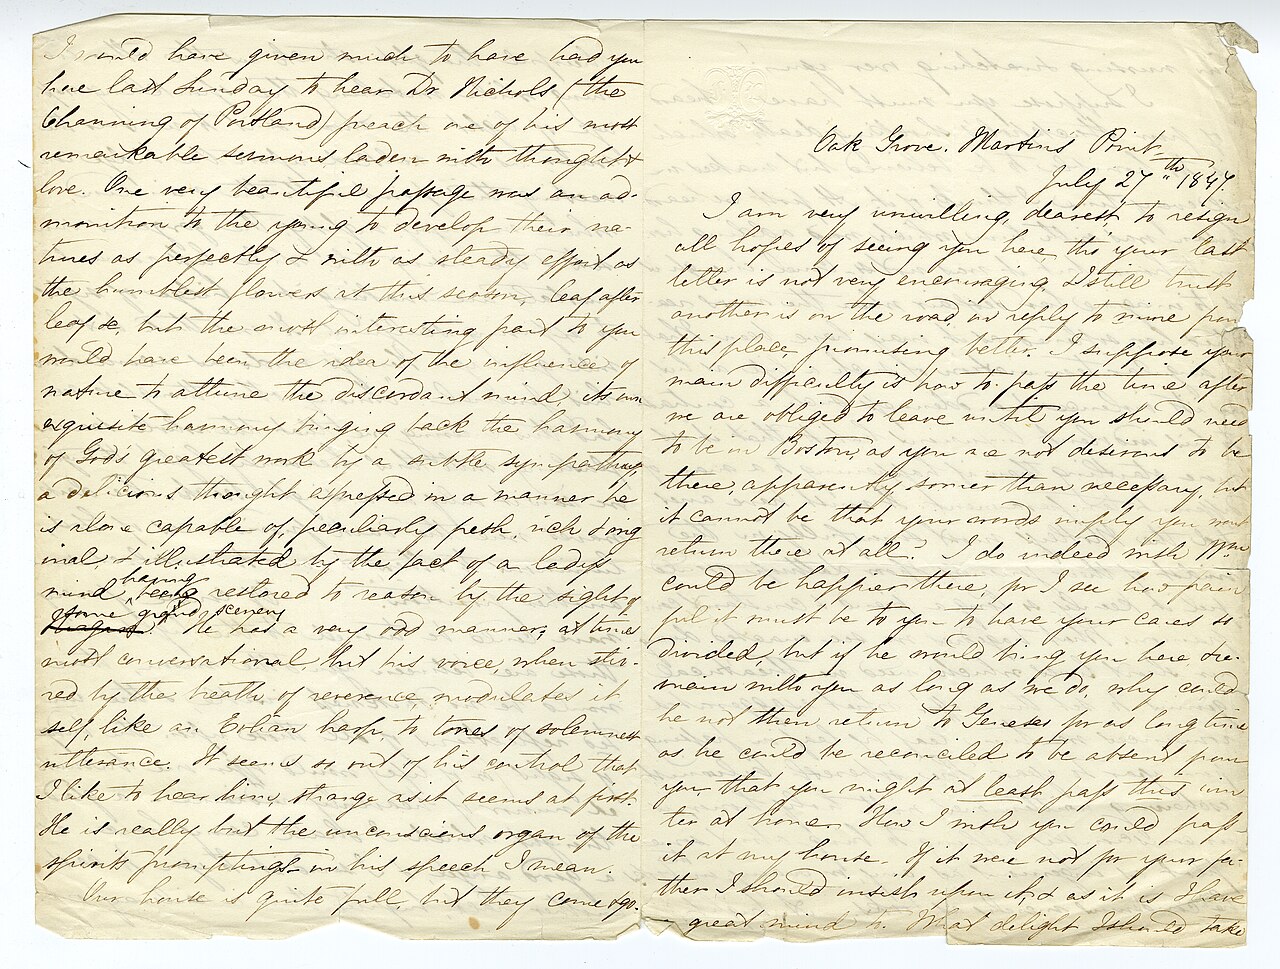 I would have given much to have had you
here last Sunday to hear Dr Nichols (the
Channing of Portland) preach one of his most
remarkable sermons laden with thought &
love. One very beautiful passage was an ad-
monition to the young to develop their na-
tures as perfectly & with as steady effort as
the humblest flowers at this season, leaf after
leaf &c, but the most interesting part to you
would have been the idea of the influence of
nature to attune the discordant mind, its own
exquisite harmony bringing back the harmony
of God's greatest work by a subtle sympathy,
a delicious thought expressed in a manner he
is alone capable of, peculiarly fresh, rich & orig
inal & illustrated by the fact of a lady's
mind having being restored to reason by the sight of
some grand scenery Niagara. He has a very odd manner, at times
most conversational, but his voice, when stir-
red by the breath of reverence, modulates it
self, like an Eolian harp, to tones of solemnest
utterance. It seems so out of his control that
I like to hear him, strange as it seems at first.
He is really but the unconscious organ of the
spirit's promptings - in his speech I mean.
Our house is quite full, but they come & go.
Oak Grove. Martin's Point
July 27th 1847.
I am very unwilling, dearest, to resign
all hopes of seeing you here tho' your last
letter is not very encouraging, I still trust
another is on the road, in reply to mine from
this place, promising better. I suppose your
main difficulty is how to pass the time after
we are obliged to leave until you should need
to be in Boston, as you are not desirous to be
there, apparently, sooner than necessary, but
it cannot be that your words imply you wont
return there at all? I do indeed wish Wm
could be happier there, for I see how pain
ful it must be to you to have your cares so
divided, but if he would bring you here & re-
main with you as long as we do, why could
he not then return to Geneseo for as long time
as he could be reconciled to be absent from
you that you might at least pass this win
ter at home. How I wish you could pass
it at my house. If it were not for your fa-
ther I should insist upon it, & as it is I have
great mind to. What delight I should take